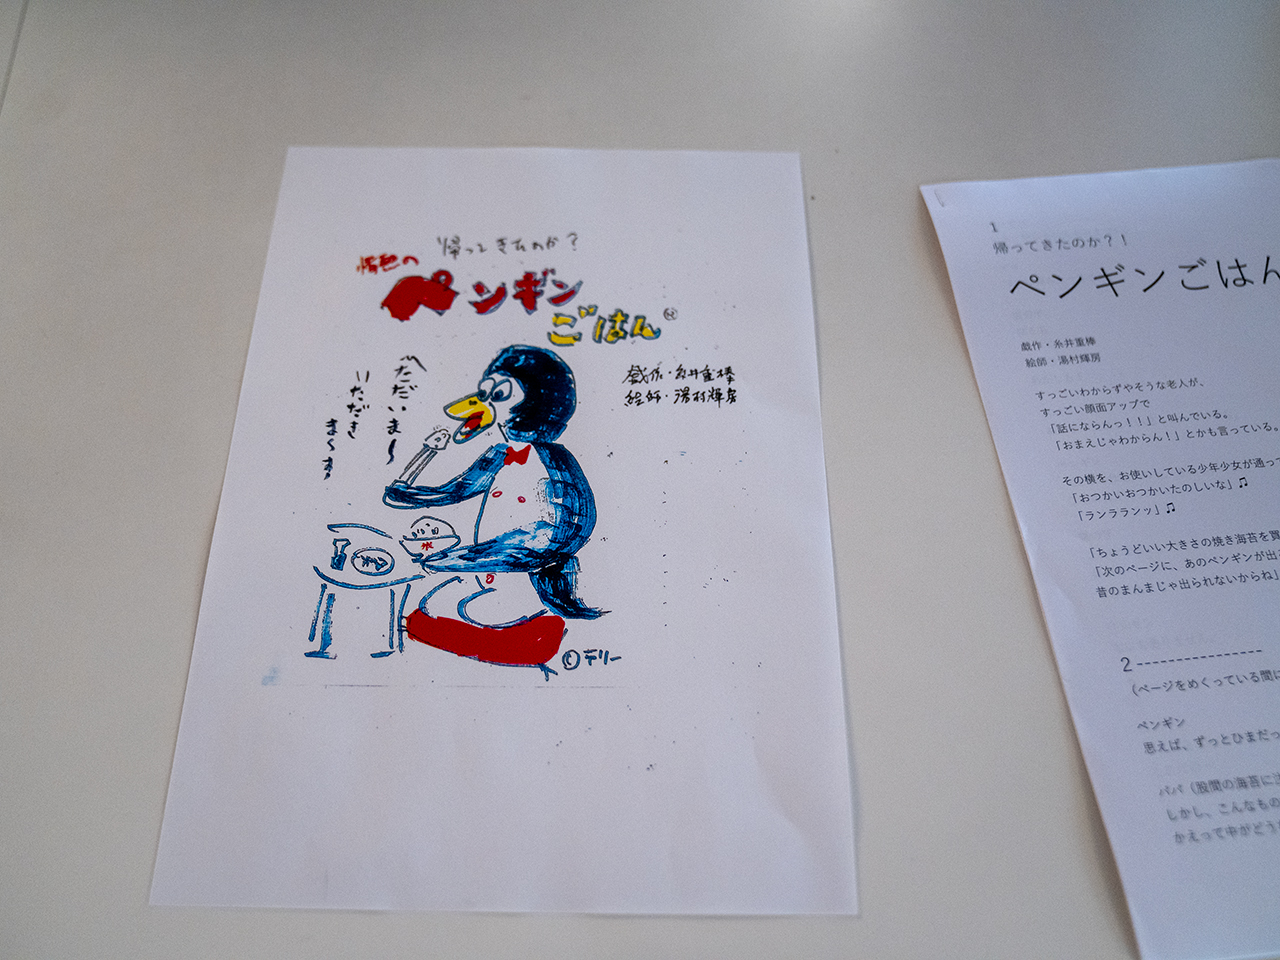 帰ってきたのか?
情色の
ペンギン
ごはん
戯作・糸井重棒
絵師・湯村輝房
ただいま〜
いただき
ま〜す。
©テリー
1
帰ってきたのか?!
ペンギンごはん
戯作・糸井重棒
絵師・湯村輝房
すっごいわからずやそうな老人が、
すっごい顔面アップで
「話にならんっ!!」と叫んでいる。
「おまえじゃわからん!」とかも言っている。
その横を、お使いしている少年少女が通って
「おつかいおつかいたのしいな」♫
「ランラランッ」♫
「ちょうどいい大きさの焼き海苔を買
「次のページに、あのペンギンが出
昔のまんまじゃ出られないからね」
2 ----------------
(ページをめくっている間に
ペンギン
思えば、ずっとひまだっ
パパ(股間の海苔に注
しかし、こんなもの
かえって中がどう